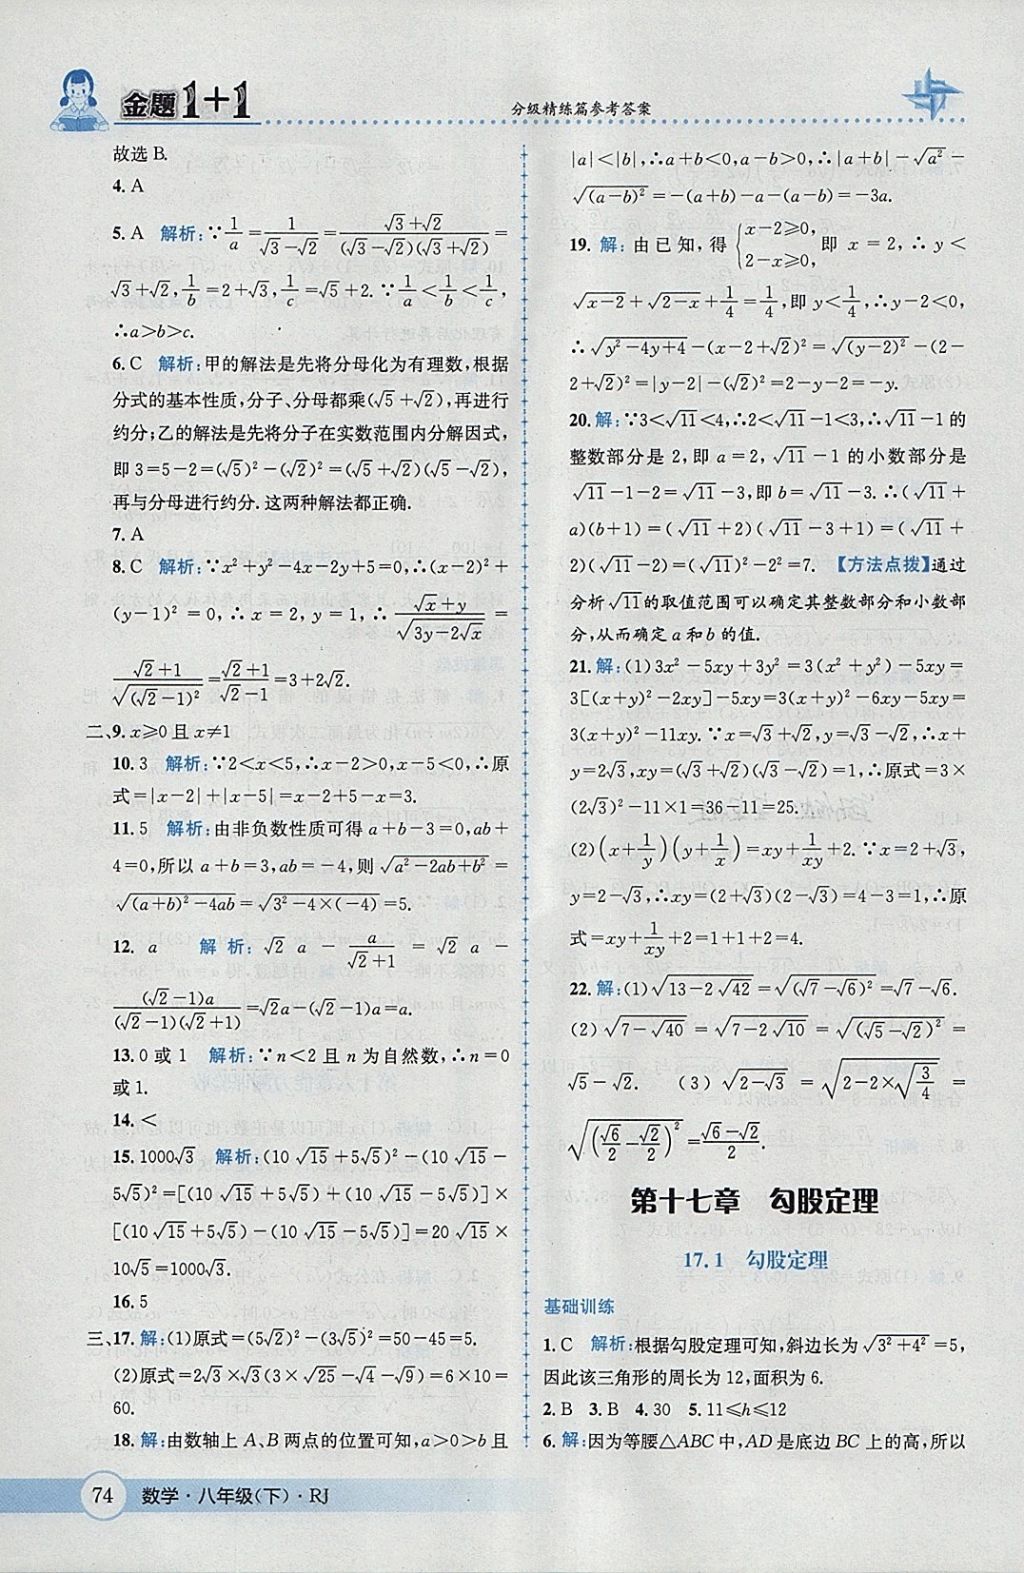 金题1+1
分级精练篇参考答案
故选B.
4. A
5. A 解析:∵1/a=1/(√3-√2)=(√3+√2)/((√3-√2)(√3+√2))=
√3+√2,1/b=2+√3,1/c=√5+2.∵1/a<1/b<1/c,
∴a>b>c.
6. C 解析:甲的解法是先将分母化为有理数,根据
分式的基本性质,分子、分母都乘(√5+√2),再进行
约分;乙的解法是先将分子在实数范围内分解因式,
即3=5-2=(√5)²-(√2)²=(√5+√2)(√5-√2),
再与分母进行约分.这两种解法都正确.
7. A
8. C 解析:∵x²+y²-4x-2y+5=0,∴(x-2)²+
(y-1)²=0,∴x=2,y=1,∴(√x+y)/√(3y-2√x)=
(√2+1)/√((√2-1)²)=(√2+1)/(√2-1)=3+2√2.
二、9. x≥0且x≠1
10. 3 解析:∵2<x<5,∴x-2>0,x-5<0,∴原
式=|x-2|+|x-5|=x-2+5-x=3.
11. 5 解析:由非负数性质可得a+b-3=0,ab+
4=0,所以a+b=3,ab=-4,则√(a²-2ab+b²)=
√((a+b)²-4ab)=√(3²-4×(-4))=5.
12. a 解析:√2a-a/(√2+1)=√2a-
(√2-1)a/((√2-1)(√2+1))=√2a-(√2-1)a=a.
13. 0或1 解析:∵n<2且n为自然数,∴n=0
或1.
14. <
15. 1000√3 解析:(10√15+5√5)²-(10√15-
5√5)²=[(10√15+5√5)+(10√15-5√5)]×
[(10√15+5√5)-(10√15-5√5)]=20√15×
10√5=1000√3.
16. 5
三、17. 解:(1)原式=(5√2)²-(3√5)²=50-45=5.
(2)原式=2√3×√3(3×√25-√4-√9)=6×10=
60.
18. 解:由数轴上A、B两点的位置可知,a>0>b且
|a|<|b|,∴a+b<0,a-b>0,∴|a+b|-√a²-
√((a-b)²)=-(a+b)-a-(a-b)=-3a.
19. 解:由已知,得{x-2≥0, 2-x≥0,即x=2,∴y<
√(x-2)+√(2-x)+1/4=1/4,即y<1/4,∴y-2<0,
∴√(y²-4y+4)-(x-2+√2)²=√((y-2)²)-(2-
2+√2)²=|y-2|-(√2)²=2-y-2=-y.
20. 解:∵3<√11<4,∴2<√11-1<3,∴√11-1的
整数部分是2,即a=2,√11-1的小数部分是
√11-1-2=√11-3,即b=√11-3.∴(√11+
a)(b+1)=(√11+2)(√11-3+1)=(√11+
2)(√11-2)=(√11)²-2²=7.【方法点拨】通过
分析√11的取值范围可以确定其整数部分和小数部
分,从而确定a和b的值.
21. 解:(1)3x²-5xy+3y²=3(x²+y²)-5xy=
3[(x+y)²-2xy]-5xy=3(x+y)²-6xy-5xy=
3(x+y)²-11xy.∵x=√3+√2,y=√3-√2,∴x+
y=2√3,xy=(√3+√2)(√3-√2)=1,∴原式=3×
(2√3)²-11×1=36-11=25.
(2)(x+1/y)(y+1/x)=xy+1/xy+2.∵x=2+√3,
y=2-√3,∴xy=(2+√3)(2-√3)=4-3=1,∴原
式=xy+1/xy+2=1+1+2=4.
22. 解:(1)√(13-2√42)=√((√7-√6)²)=√7-√6.
(2)√(7-√40)=√(7-2√10)=√((√5-√2)²)=
√5-√2. (3)√(2-√3)=√(2-2×√(3/4))=
√((√6/2-√2/2)²)=(√6-√2)/2.
第十七章 勾股定理
17.1 勾股定理
基础训练
1. C 解析:根据勾股定理可知,斜边长为√(3²+4²)=5,
因此该三角形的周长为12,面积为6.
2. B 3. B 4. 30 5. 11≤h≤12
6. 解:因为等腰△ABC中,AD是底边BC上的高,所以
74 数学·八年级(下)·RJ